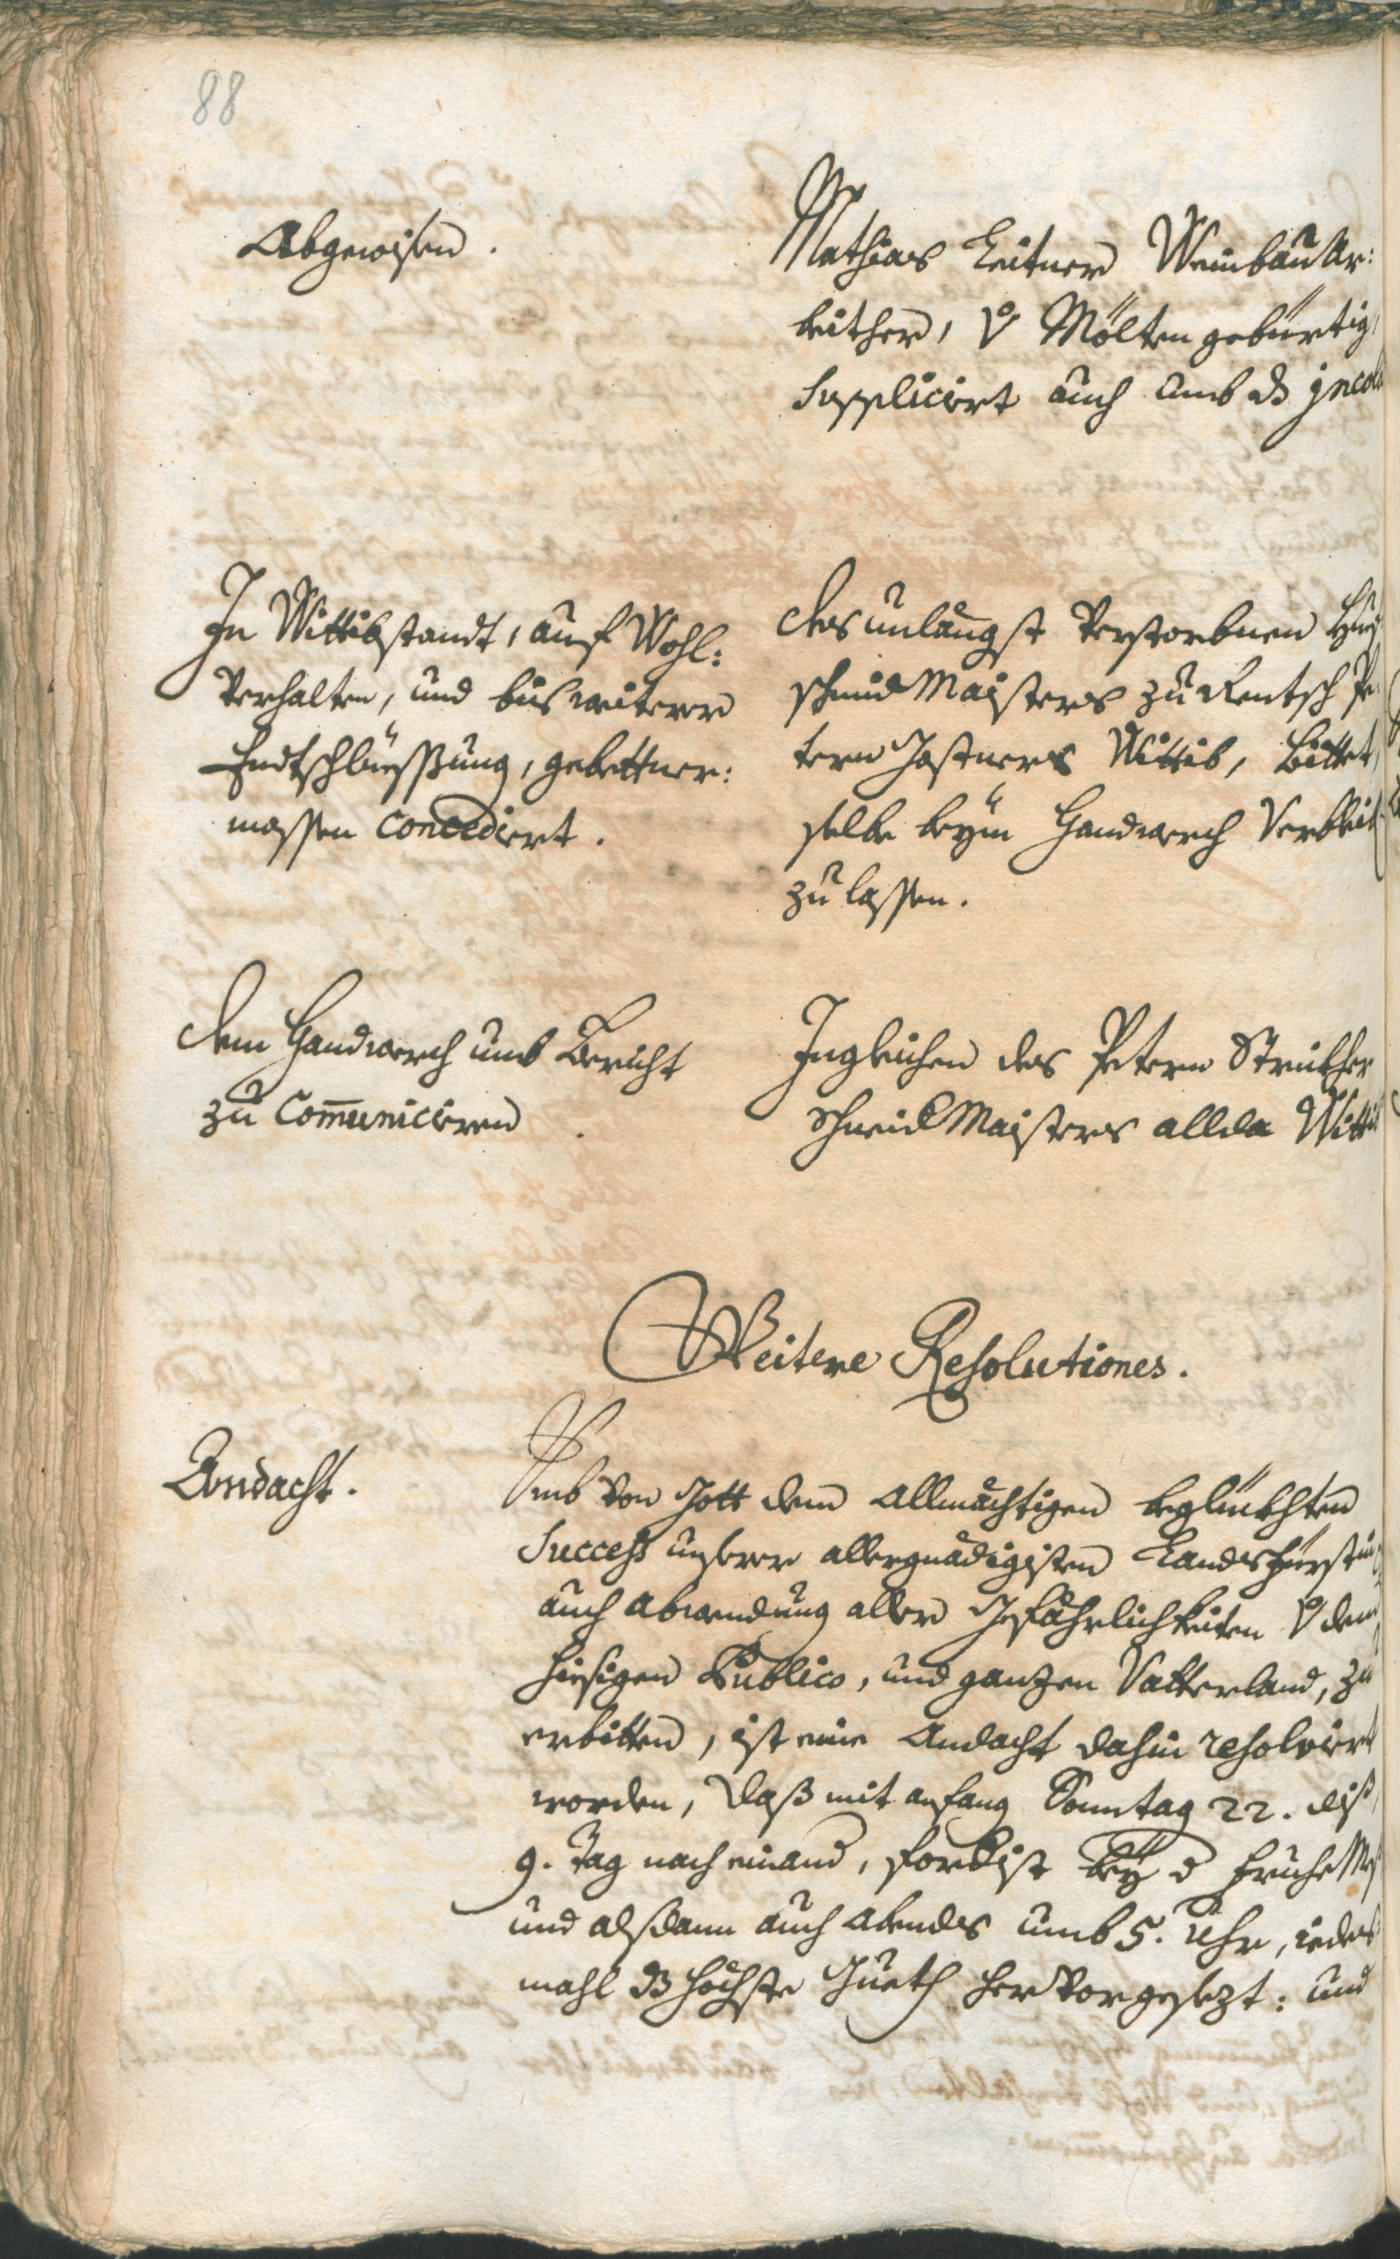 88
Abgewisen.
Mathias Leitner Weinbau Ar:
beither, v Mölten gebürtig,
Supplicirt auch umb ds jncolat
In Wittibstandt, auf Wohl:
Verhalten, und bis weiterer
Endtschlüessung, gebettner:
massen concedirt.
des unlängst Verstorbnen Hue
schmid Maisters zu Rentsch Pe
tern Gostners Wittib, bittet
selbe beÿm Handwerch Verbleib
zu lassen.
dem Handwerch umb Bericht
zu Com̅uniciren.
Ingleichen des Petern Streither
Schneid Maisters allda Wittib
Weitere Resolutiones.
Andacht.
Umb von Gott dem Allmächtigen beglückhten
Success unserer allergnädigisten Landsfürstin,
auch abwendung aller Gefährlichkeiten v dem
hiesigen Publico, und ganzen Vatterland, zu
erbitten, ist eine Andacht dahin resolvirt
worden, daß mit anfang Sonntag 22. diß
9. Tag nach einand, fordist beÿ d Fruehe Mess
und alßdann auch abendts umb 5. Uhr, iedes
mahl ds höchste Gueth hervorgesezt: und